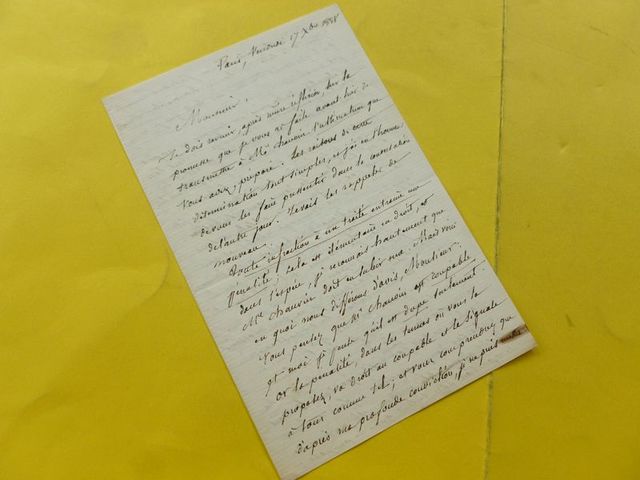 Paris, Vendredi 17 Xbre 1858
Monsieur,
Je dois revenir, après mûre réflexion, sur la
promesse que je vous ai faite avant hier de
transmettre à Mr Chauvin l'ultimatum que
vous avez préparé. Les raisons de cette
détermination sont simples, et j'ai eu l'honneur
de vous les faire pressentir dans la conversation
de l'autre jour. Je vais les rappeler de
nouveau.
Toute infraction à un traité entraîne une
pénalité; cela est élémentaire en droit, et
dans l'espèce, je reconnais hautement que
Mr Chauvin doit en subir une. Mais voici
en quoi nous différons d'avis, Monsieur.
Vous pensez que Mr Chauvin est coupable
et moi je pense qu'il est dupe seulement.
or la pénalité, dans les termes où vous la
proposez, va droit au coupable et le signale
à tous comme tel; et vous comprendrez que
d'après ma profonde conviction, je ne puis